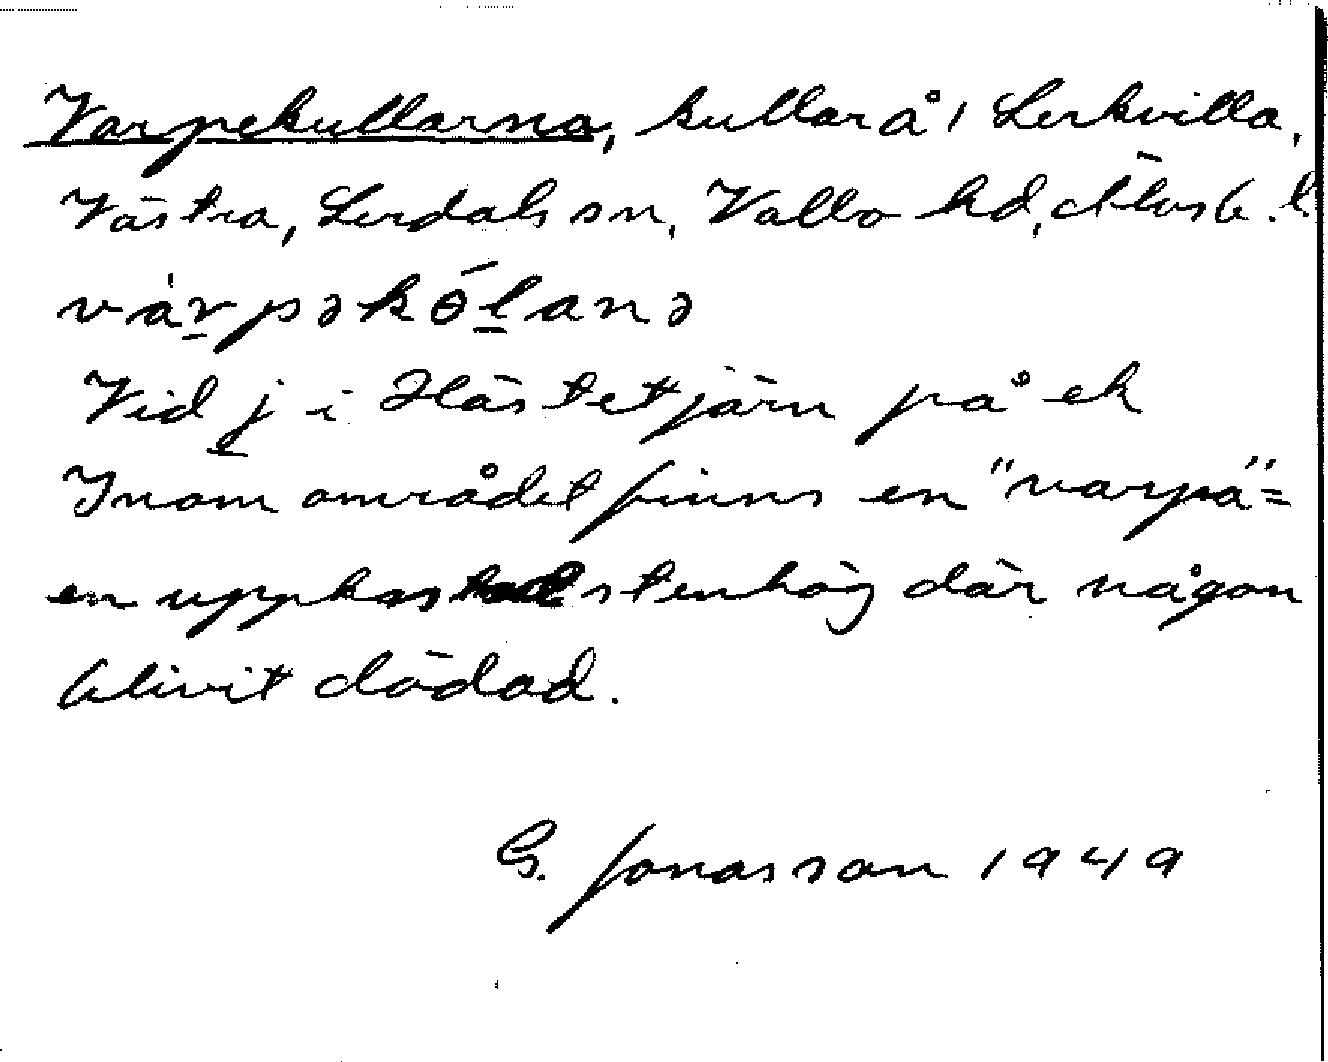 Varpekullarna, kullar å 1 Lerkvilla,
Västra, Lerdals sn, Valbo hd, Älvsb. l.
vàrpəkɵ́lanə
Vid j i Hästetjärn på ek
Inom området finns en "varpa"=
en uppkastad stenhög där någon
blivit dödad.
G. Jonasson 1949